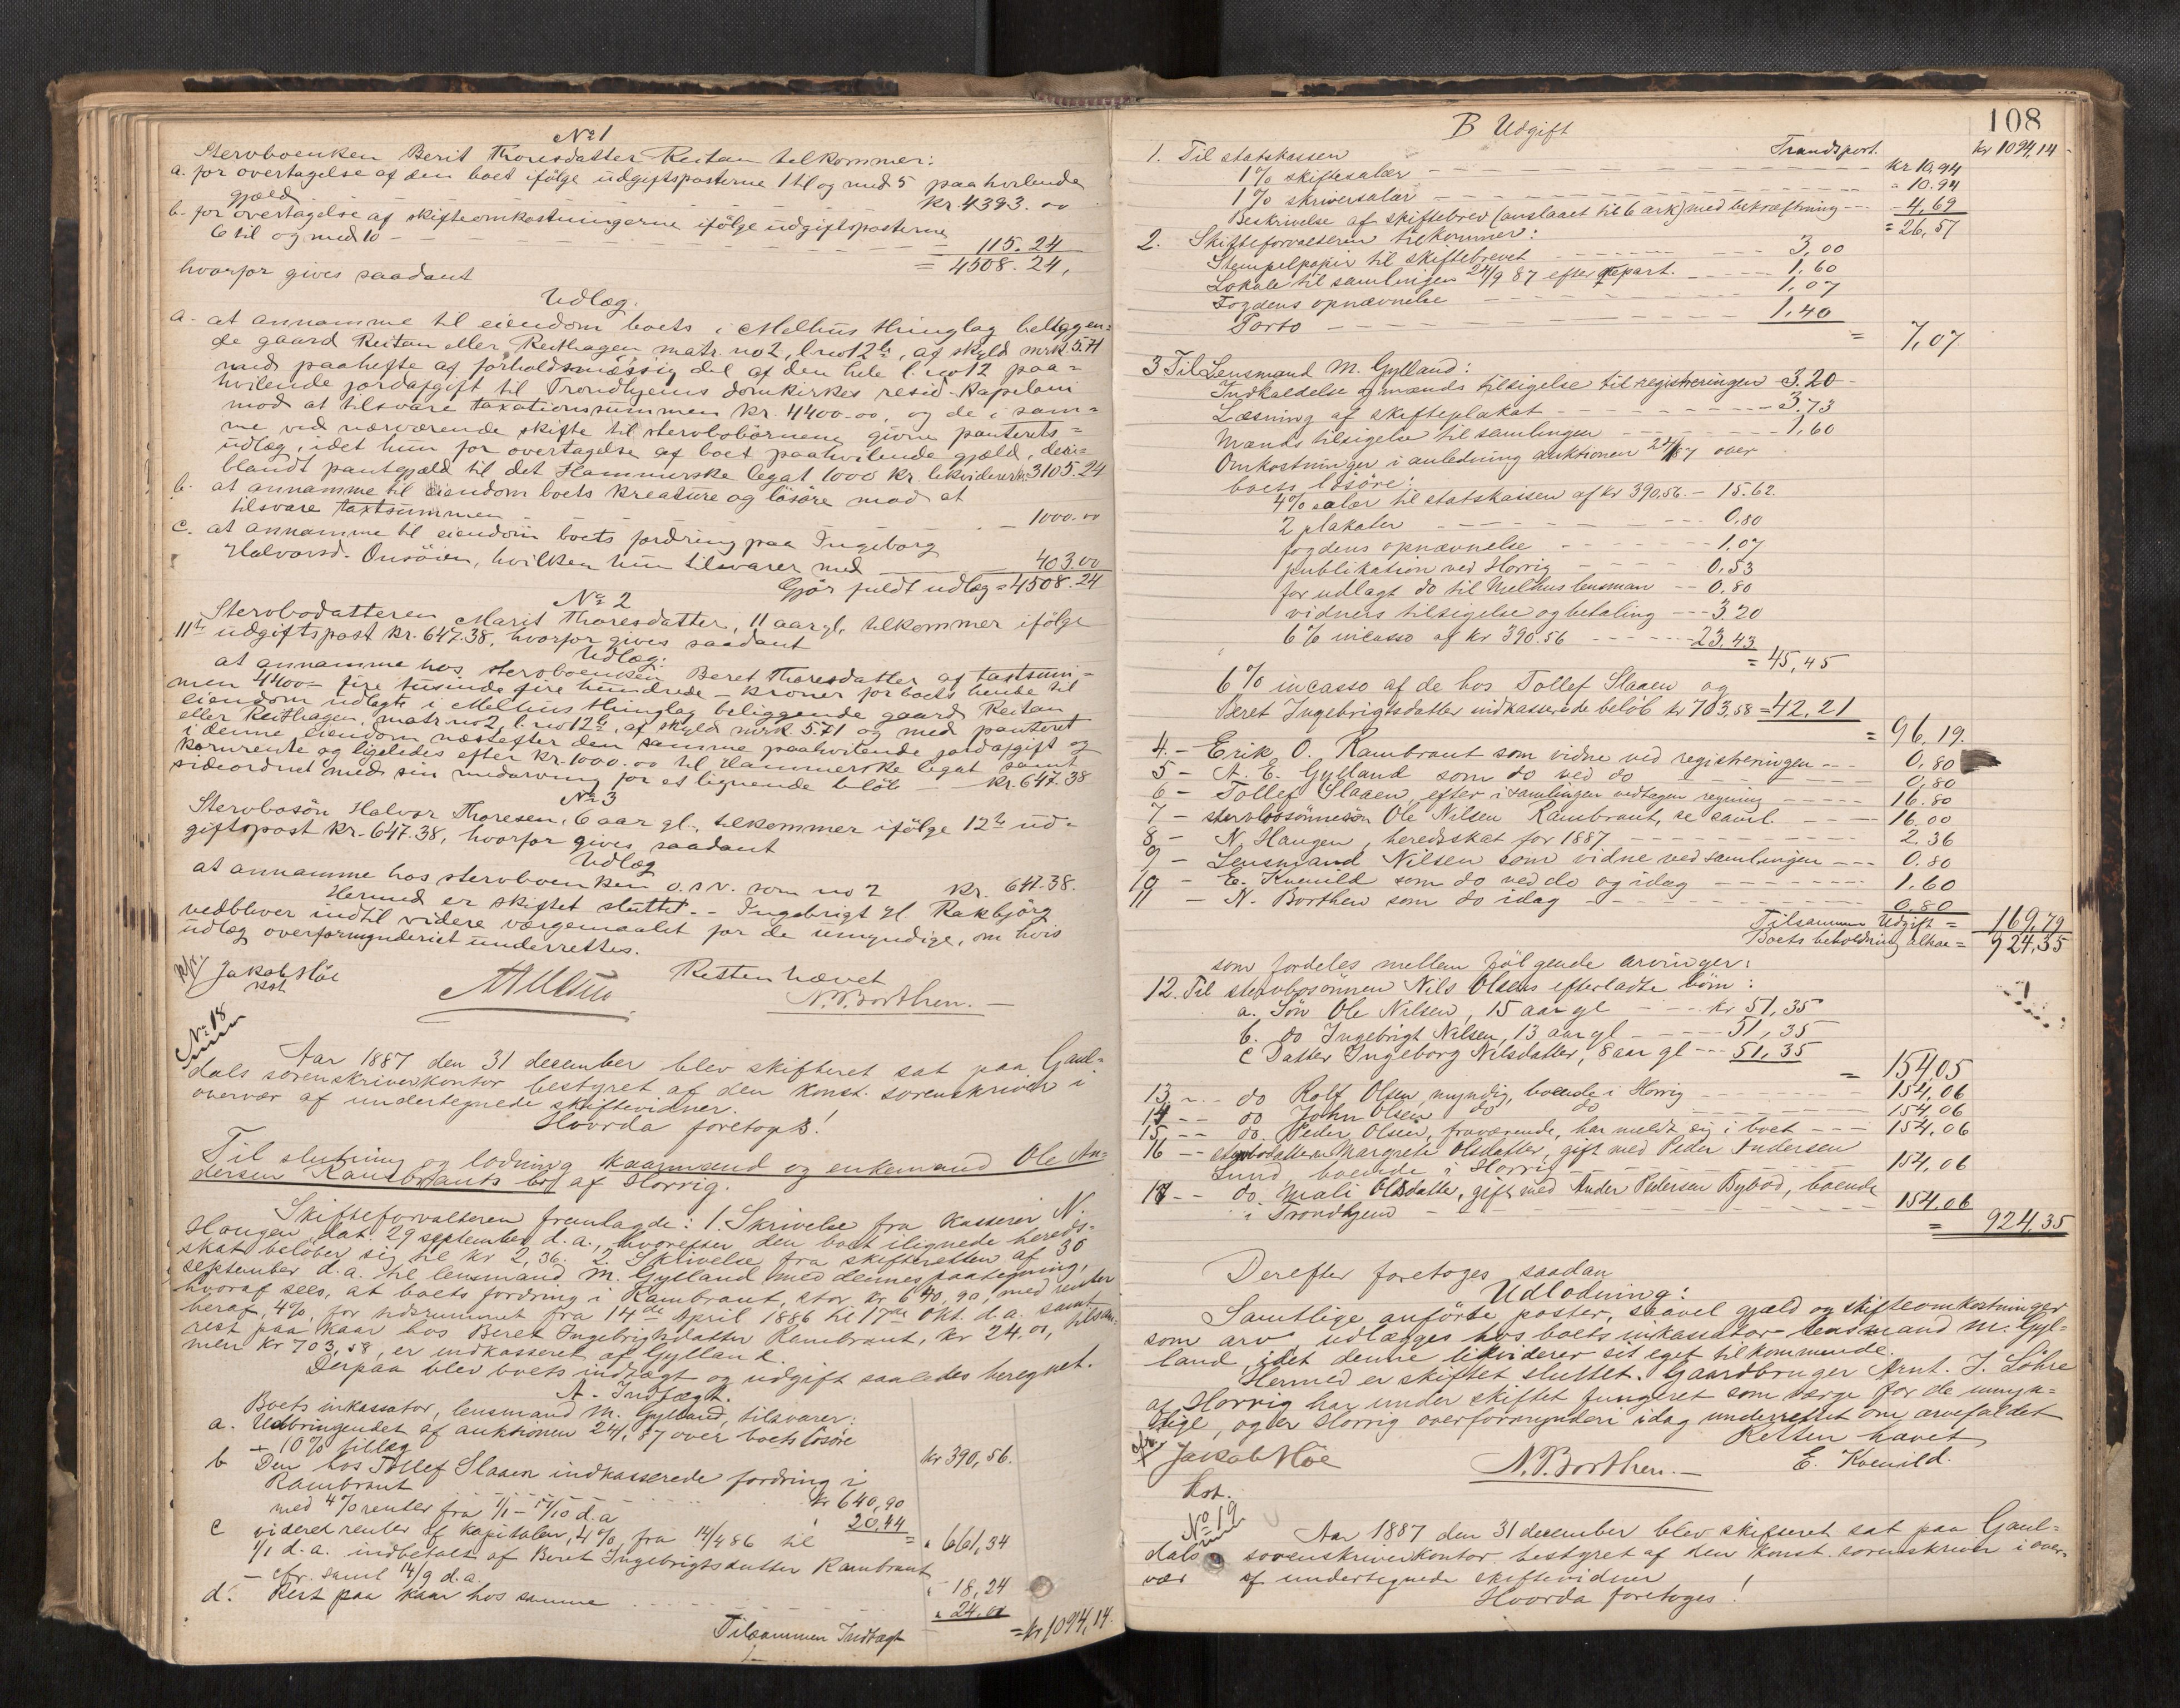 No 1
Stervboenken Berit Thoresdatter Reitan tilkommer:
a. for overtagelse af den boet ifölge udgiftsposterne 1 til og med 5 paahvilende
gjæld kr. 4393.00
b. for overtagelse af skifteomkostningerne ifölge udgiftsposterne
6 til og med 10 - 115.24
= 4508.24,
hvorfor gives saadant
Udlæg.
a. at annamme til eiendom boets i Melhus thinglag beliggen=
de gaard Reitan eller Reithagen matr. no 2, l. no 12 b, af skyld mrk. 5.71
med paahefte af forholdsmæssig del af den hele l. no 12 paa=
hvilende jordafgift til Trondhjems domkirkes resid. Kapelani
mod at tilsvare taxationssummen kr. 4400.00, og de i sam=
me ved nærværende skifte til stervbobörnene givne panterets=
udlæg, idet hun for overtagelse af boet paahvilende gjæld, deri=
blandt pantegjæld til det Hammerske legat 1000 kr. likviderer kr. 3105.24
b. at annamme til eiendom boets kreature og lösöre mod at
tilsvare taxtsummen - 1000.00
c. at annamme til eiendom boets fordring paa Ingeborg
Halvorsd. Onsöien, hvilken hun tilsvarer med - 403.00
Gjör fuldt udlæg = 4508.24
No 2
Stervbodatteren Marit Thoresdatter, 11 aar gl. tilkommer ifölge
11te udgiftspost kr. 647.38, hvorfor gives saadant
Udlæg:
at annamme hos stervboenken Beret Thoresdatter af taxtsum=
men 4400 - fire tusinde fire hundrede - kroner for boets hende til
eiendom udlagte i Melhus thinglag beliggende gaard Reitan
eller Reithagen, matr. no 2, l. no 12 b, af skyld mrk. 5.71 og med panteret
i denne eiendom næstefter den samme paahvilende jordafgift og
kornrente og ligeledes efter kr. 1000.00 til Hammerske legat samt
sideordnet med sin medarving for et lignende beløb - kr. 647.38
No 3
Stervbosön Halvor Thoresen, 6 aar gl., tilkommer ifölge 12te ud=
giftspost kr. 647.38, hvorfor gives saadant
Udlæg
at annamme hos stervboenken o.s.v. som no 2 kr. 647.38.
Hermed er skiftet sluttet. - Ingebrigt gl. Rakbjörg
vedbliver indtil videre værgemaalet for de umyndige, om hvis
udlæg overformynderiet underrettes.
Retten hævet
Jakob Höe
kst.
N. P. Borthen. -
No 18
Aar 1887 den 31 december blev skifteret sat paa Gaul=
dals sorenskriverkontor bestyret af den konst. sorenskriver i
overvær af undertegnede skiftevidner.
Hvorda foretoges!
Til slutning og lodning kaarmand og enkemand Ole An=
dersen Rambrauts bo af Horrig.
Skifteforvalteren fremlagde: 1. Skrivelse fra kasserer N.
Haugen, dat. 29 september d.a., hvorefter den boet ilignede hereds=
skat belöber sig til kr 2,36. 2. Skrivelse fra skifteretten af 30
september d.a. til lensmand M. Gylland med dennes paategning,
hvoraf sees, at boets fordring i Rambraut, stor kr 640,90, med renter
heraf, 4%, for tidsrummet fra 14de April 1886 til 17de Okt. d.a. samt
rest paa kaar hos Beret Ingebrigtsdatter Rambraut, kr 24,00, tilsam=
men kr 703,58, er indkasseret af Gylland.
Derpaa blev boets indtægt og udgift saaledes beregnet.
A - Indtægt.
Boets inkassator, lensmand M. Gylland, tilsvarer:
a. Udbringendet af auktionen 24/1 87 over boets lösöre
+ 10% tillæg kr 390,56.
b Den hos Tollef Slaaen indkasserede fordring i
Rambraut kr 640,90
med 4% renter fra 1/1 - 17/10 d.a 20,44
= " 661,34
c videre renter af kapitalen, 4% fra 14/4 86 til
1/1 d.a. indbetalt af Beret Ingebrigtsdatter Rambraut
- cfr. saml 14/9 d.a. " 18,24
d. Rest paa kaar hos samme " 24.00
Tilsammen Indtægt = kr 1094,14.
108
B Udgift
Transport. kr 1094,14
1. Til statskassen
1% skiftesalær - kr 10,94
1% skriversalær - " 10.94
Beskrivelse af skiftebrev (anslaaet til 6 ark) med bekræftning - 4,69
= 26,57
2. Skifteforvalteren tilkommer:
Stempelpapir til skiftebrevet - 3,00
Lokale til samlingen 24/9 87 efter repart. - 1,60
Fogdens opnævnelse - 1,07
Porto - 1,40
= 7,07
3 Til Lensmand M. Gylland:
Indkaldelse og mænds tilsigelse til registreringen - 3.20
Læsning af skifteplakat - 3.73
Mænds tilsigelse til samlingen - 1,60
Omkostninger i anledning auktionen 24/1 87 over
boets lösöre:
4% salær til statskassen af kr 390,56. - 15.62.
2 plakater - 0,80
fogdens opnævnelse - 1,07
publikation ved Horrig - 0,53
for udlagt do til Melhus lensman - 0,80
vidners tilsigelse og betaling - 3.20
6% incasso af kr 390.56 - 23,43
= 45,45
6% incasso af de hos Tollef Slaaen og
Beret Ingebrigtsdatter indkasserede beløb kr 703,58 = 42,21
= 96,19.
4. - Erik O. Rambraut som vidne ved registreringen - 0,80
5 - A. E. Gylland som do ved do 0,80
6 - Tollef Slaaen, efter i samlingen vedtagen regning - 16.80
7 - stervbosönnesön Ole Nilsen Rambraut, se saml. - 16.00
8 - N. Haugen, heredsskat for 1887 - 2,36
9 - Lensmand Nilsen som vidne ved samlingen - 0.80
10 - E. Kvenild som do ved do og idag - 1.60
11 - N. Borthen som do idag - 0,80
Tilsammen Udgift = 169,79
Boets beholdning altsaa = 924,35
som fordeles mellem fölgende arvinger:
12. Til stervbosönnen Nils Olsens efterladte börn:
a. Sön Ole Nilsen, 15 aar gl - kr 51,35
b. do Ingebrigt Nilsen, 13 aar gl - 51,35
c Datter Ingeborg Nilsdatter, 8 aar gl - 51,35
= 154,05
13 - - do Rolf Olsen, myndig, boende i Horrig - 154,06
14 - - do John Olsen do do 154,06
15 - - do. Peder Olsen, fraværende, har meldt sig i boet - 154,06
16 - - stervbodatteren Margrete Olsdatter, gift med Peder Andersen
Lund, boende i Horrig - 154,06
17 - - do. Mali Olsdatter, gift med Ander Pedersen Bybod, boende
i Trondhjem - 154,06
= 924,35
Derefter foretoges saadan
Udlodning:
Samtlige anförte poster, saavel gjæld og skifteomkostninger
som arv udlægges hos boets inkassator lensmand M. Gyl=
land, idet denne likviderer sit eget tilkommende.
Hermed er skiftet sluttet. Gaardbruger Arnt. J. Löhre
af Horrig har under skiftet fungeret som værge for de umyn=
dige, og er Horrig overformynderi idag underrettet om arvefaldet
Retten hævet
Jakob Höe
kst.
N. P. Borthen. -
E. Kvenild.
No 19
Aar 1887 den 31 december blev skifteret sat paa Gaul=
dals sorenskriverkontor bestyret af den konst. sorenskriver i over=
vær af undertegnede skiftevidner
Hvorda foretoges!